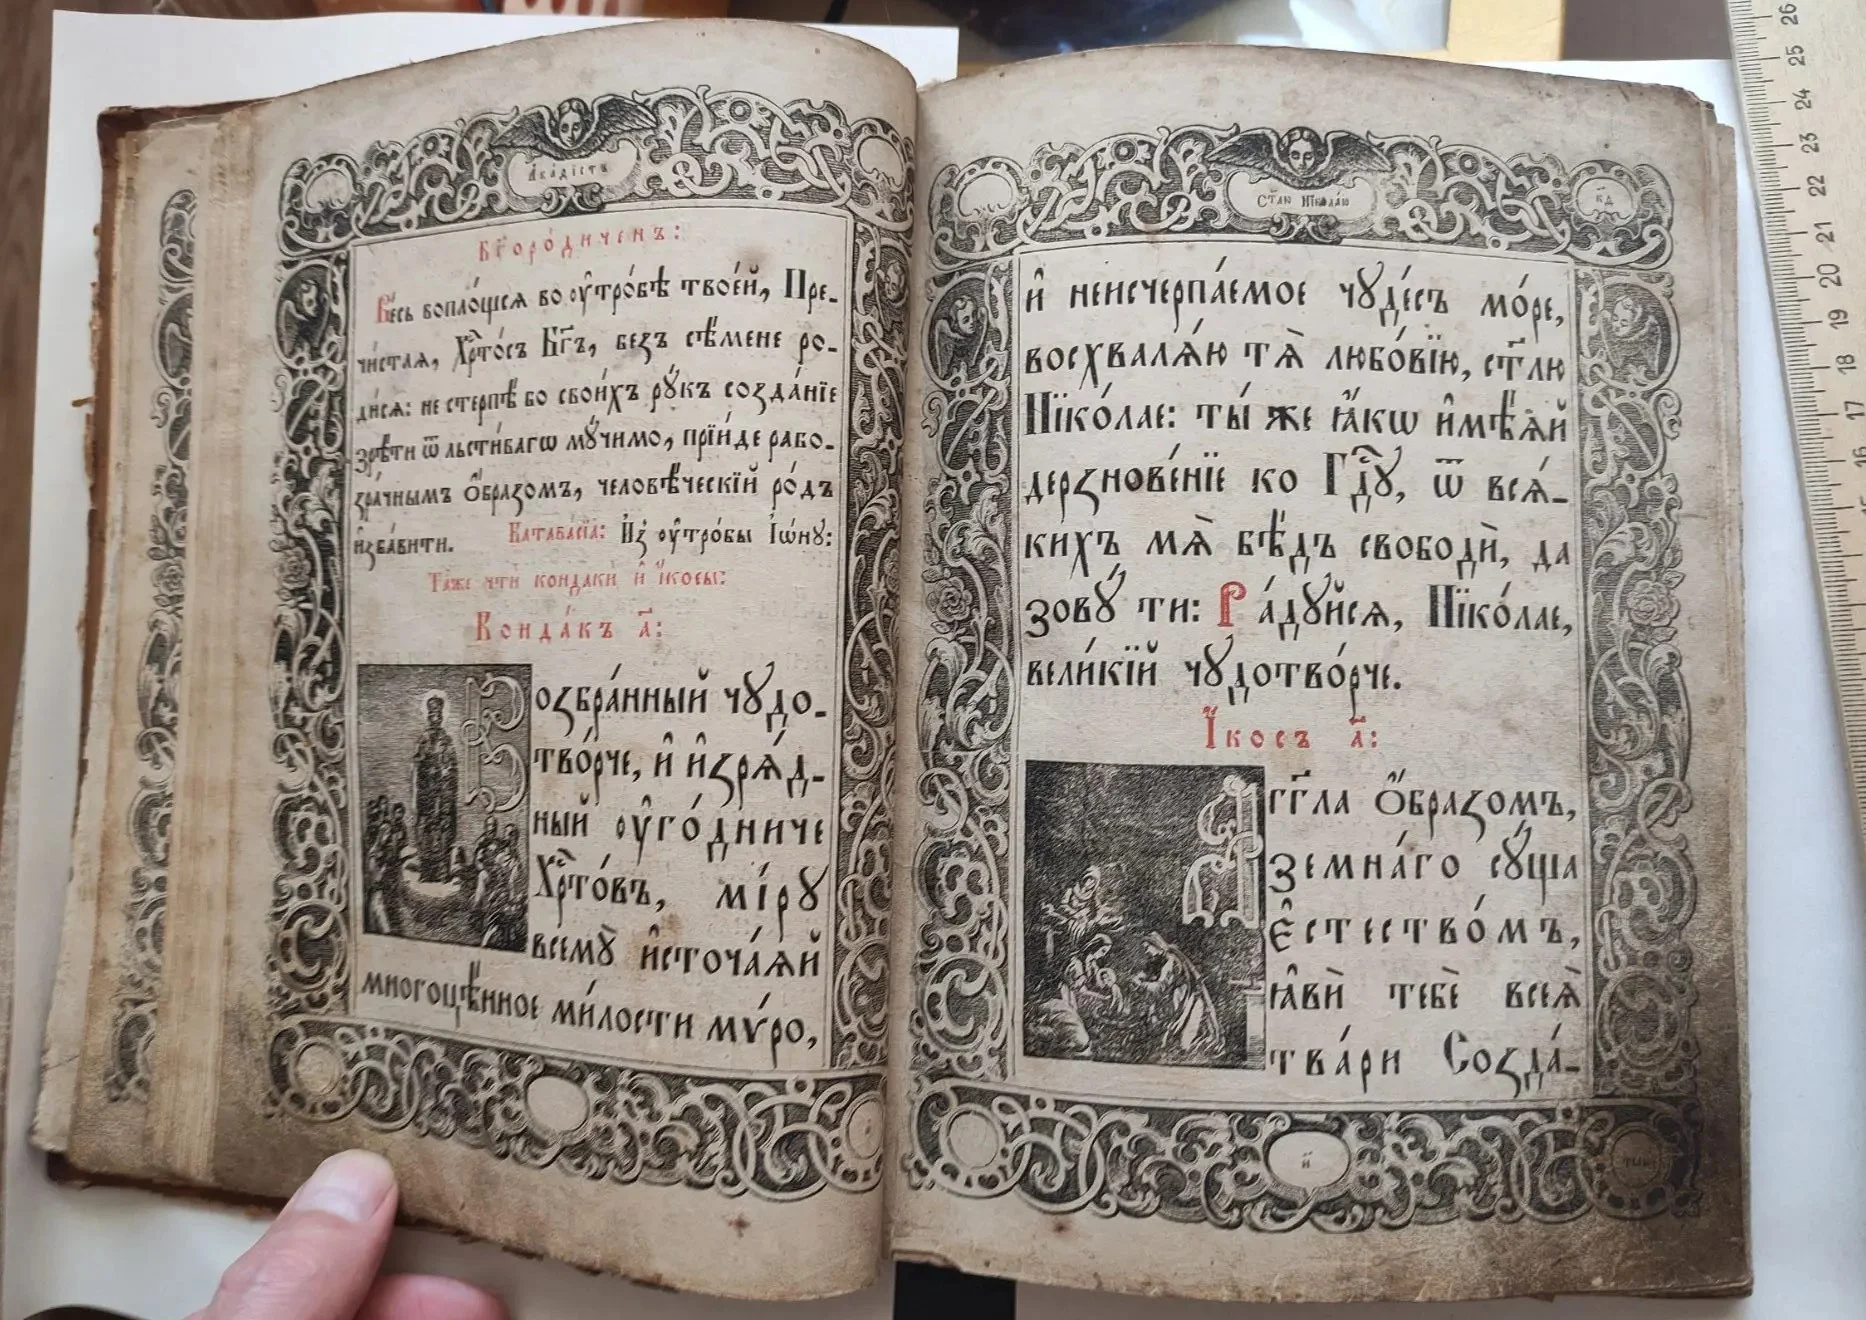 Акаѳістъ
Бг҃оро́диченъ:
Ве́сь вопло́щсѧ во ᲂу҆тро́бѣ твое́й, Пре-
чи́стаѧ, Хрⷭ҇то́съ Бг҃ъ, без̾ сѣ́мене ро-
ди́сѧ: не стерпѣ́ бо свои́хъ рꙋ́къ созда́нїе
зрѣ́ти ѿ льсти́вагѡ мꙋ́чимо, прїи́де рабо-
зра́чнымъ ѻ҆́бразомъ, человѣ́ческїй ро́дъ
и҆зба́вити. Катава́сїа: И҆з̾ ᲂу҆тро́бы І҆ѡ́нꙋ:
Та́же чтѝ кондакѝ и҆ і҆́косы:
Конда́къ а҃:
Возбра́нный чꙋдо-
тво́рче, и҆ и҆зрѧ́д-
ный ᲂу҆го́дниче
Хрⷭ҇то́въ, мі́рꙋ
всемꙋ̀ и҆сточа́ѧй
многоцѣ́нное ми́лости мѵ́ро,
Ст҃лю Нїкола́ю
к҃д
и҆ неисчерпа́емое чꙋде́съ мо́ре,
восхвалѧ́ю тѧ̀ любо́вїю, ст҃лю
Нїко́лае: ты́ же ꙗ҆́кѡ и҆мѣ́ѧй
дерзнове́нїе ко Гдⷭ҇ꙋ, ѿ всѧ́-
кихъ мѧ̀ бѣ́дъ свободѝ, да
зовꙋ́ ти: Ра́дꙋйсѧ, Нїко́лае,
вели́кїй чꙋдотво́рче.
І҆́косъ а҃:
Аг҃гла ѻ҆́бразомъ,
земна́го сꙋ́ща
є҆стество́мъ,
ꙗ҆вѝ тебѐ всеѧ̀
тва́ри Созда́-
и҃